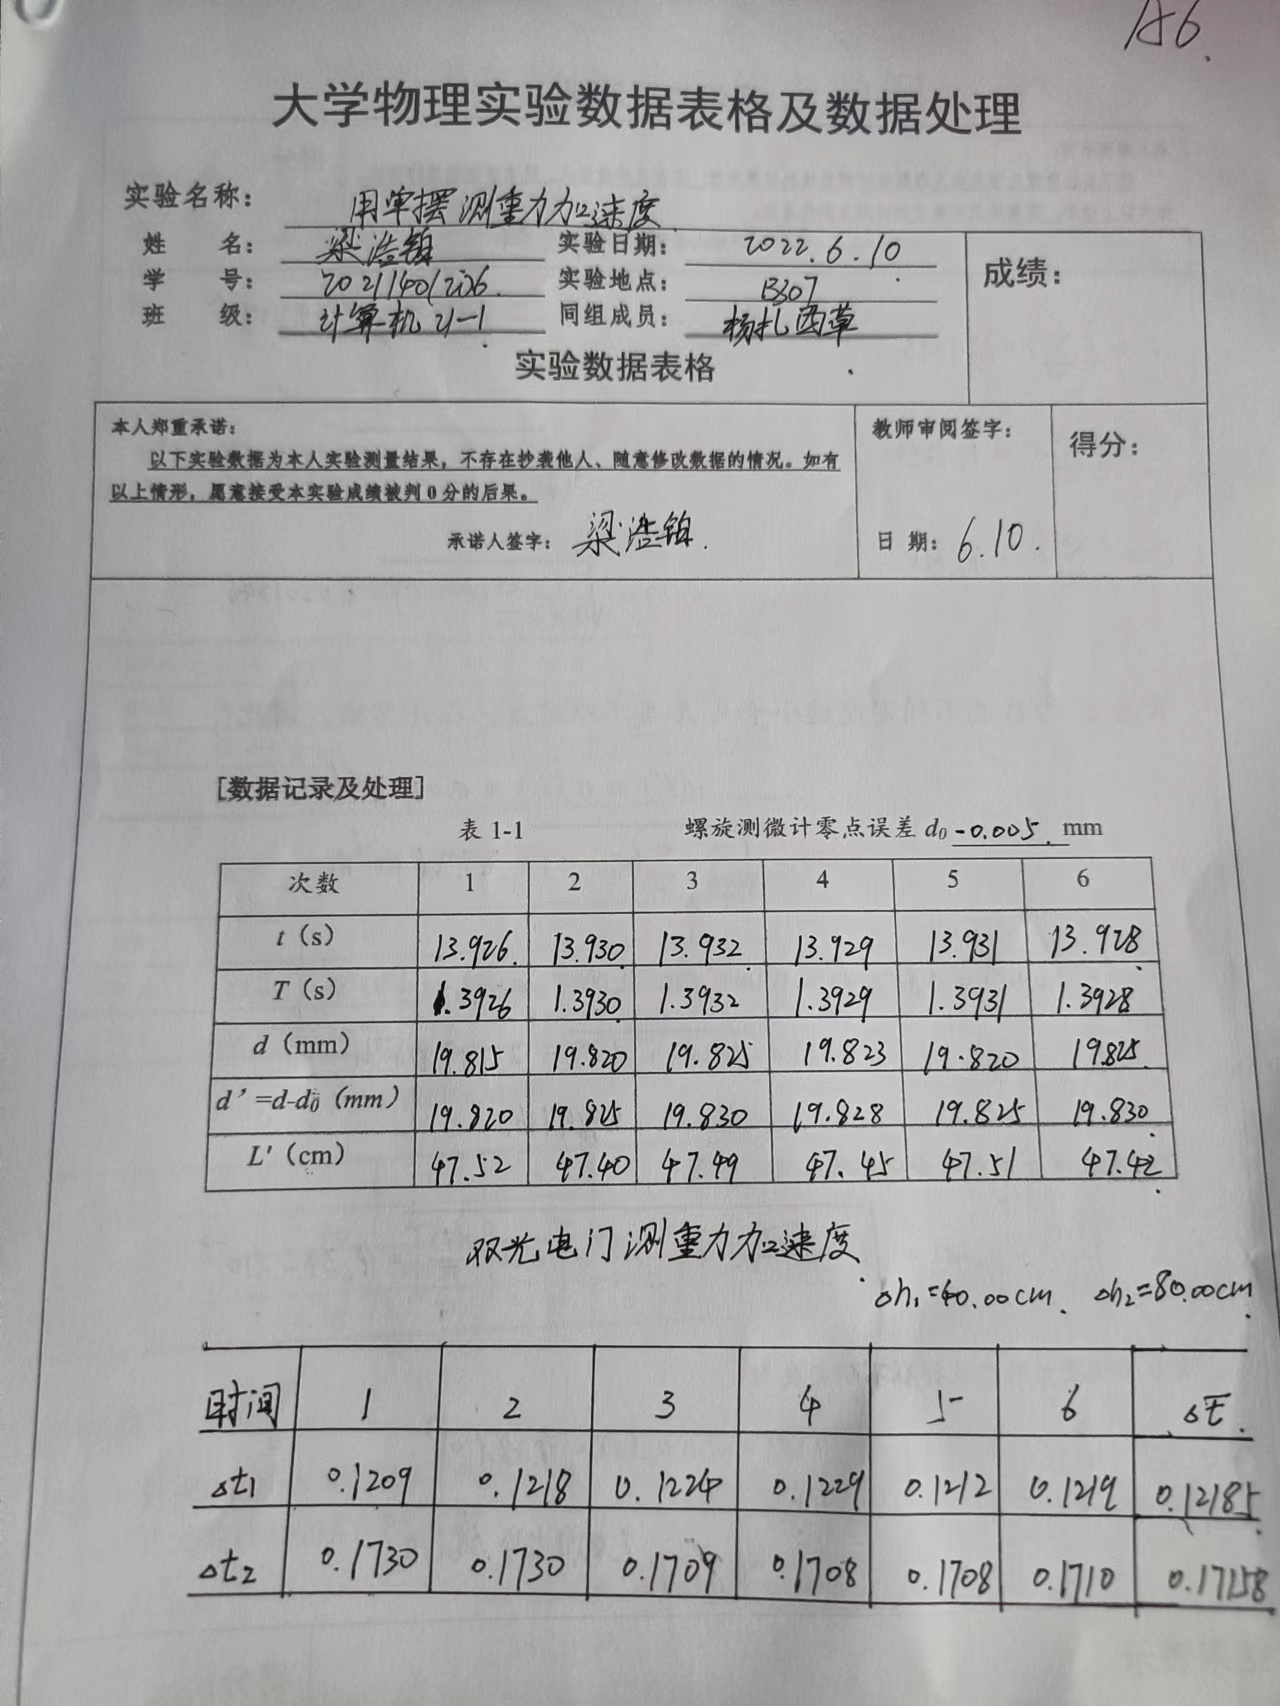 A6.
大学物理实验数据表格及数据处理
实验名称： 用单摆测重力加速度
姓 名： 梁浩铂 实验日期： 2022.6.10
学 号： 20211401206. 实验地点： B307
班 级： 计算机21-1 同组成员： 杨扎西草
成绩：
实验数据表格
本人郑重承诺：
以下实验数据为本人实验测量结果，不存在抄袭他人、随意修改数据的情况。如有
以上情形，愿意接受本实验成绩被判0分的后果。
承诺人签字： 梁浩铂.
教师审阅签字：
日 期： 6.10.
得分：
[数据记录及处理]
表 1-1 螺旋测微计零点误差 d0 -0.005. mm
次数 1 2 3 4 5 6
t（s） 13.926. 13.930 13.932. 13.929 13.931 13.928
T（s） 1.3926 1.3930 1.3932 1.3929 1.3931 1.3928
d（mm） 19.815 19.820 19.825 19.823 19.820 19.825.
d’=d-d0（mm） 19.820 19.825 19.830 19.828 19.825 19.830
L'（cm） 47.52 47.40 47.49 47.45 47.51 47.42
双光电门测重力加速度.
Δh₁=40.00cm. Δh₂=80.00cm.
时间 1 2 3 4 5 6 Δt̅.
Δt1 0.1209 0.1218 0.1224 0.1229 0.1212 0.1219 0.12185
Δt2 0.1730 0.1730 0.1709 0.1708 0.1708 0.1710 0.17158